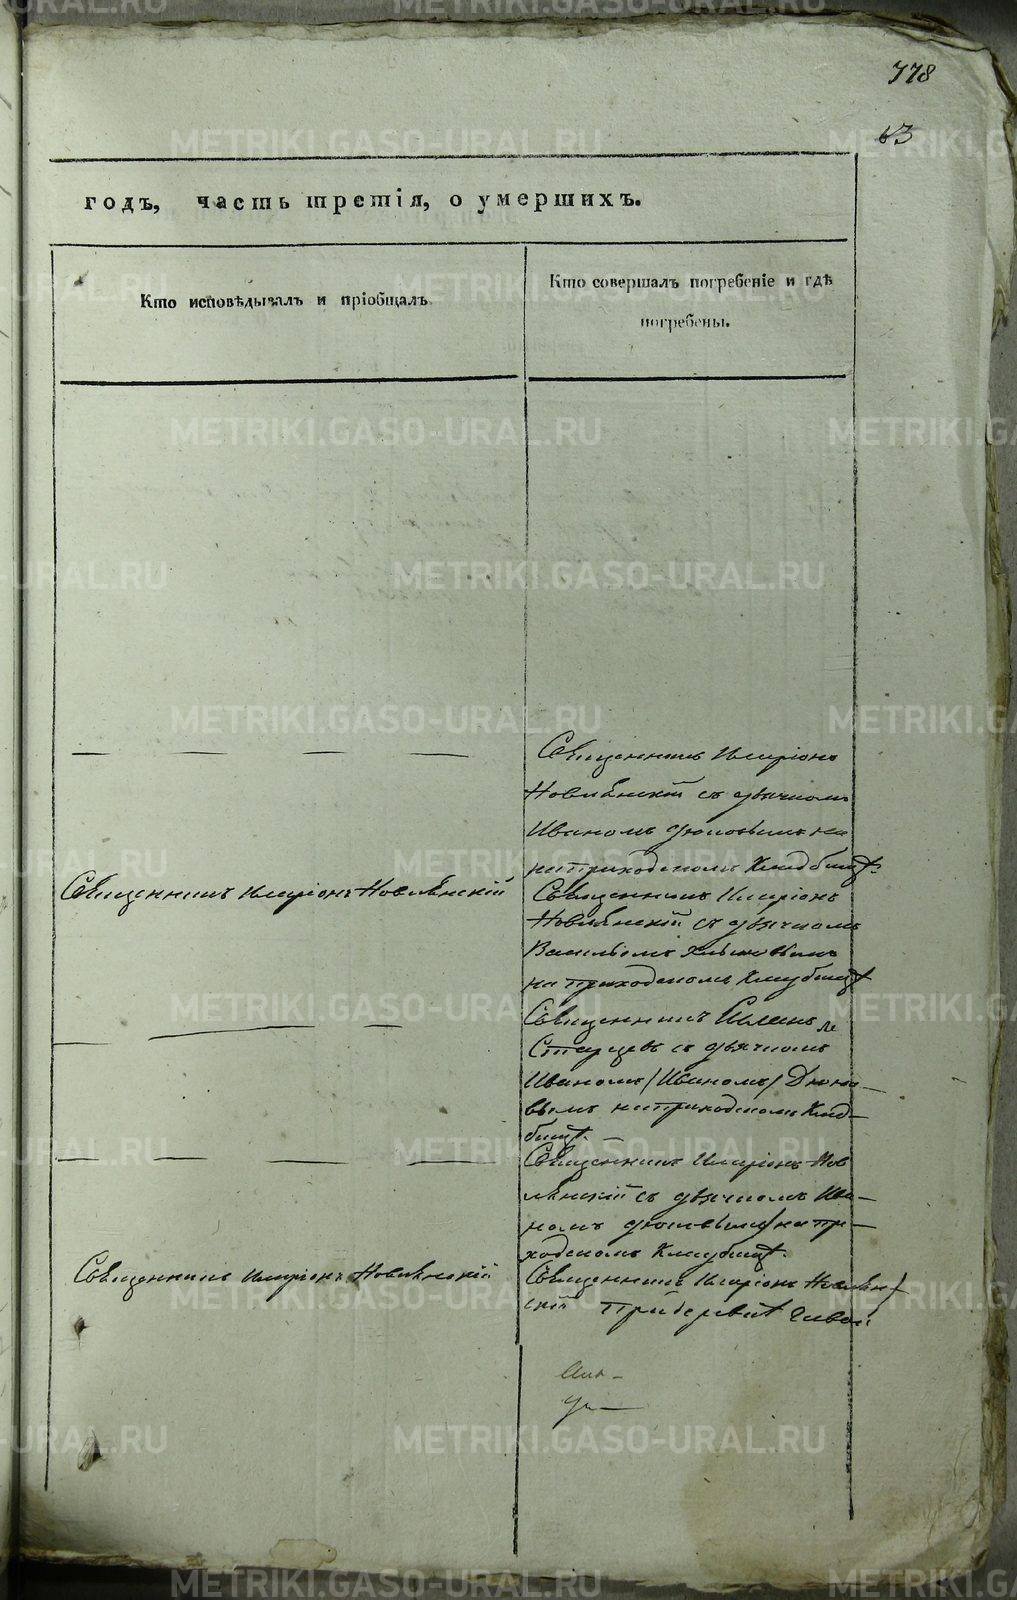 778
63
годъ, часть третія, о умершихъ.
Кто исповѣдывалъ и пріобщалъ.
Кто совершалъ погребеніе и гдѣ
погребены.
Священникъ Иларіонъ
Новлянскій съ дьячкомъ
Иваномъ
на приходскомъ Кладбищѣ.
Священникъ Иларіонъ Новлянскій
Священникъ Иларіонъ
Новлянскій съ дьячкомъ
Васильемъ
на приходскомъ Кладбищѣ
Священникъ
Старцевъ съ дьячкомъ
Иваномъ /Иваномъ/ Дюко-
вымъ на приходскомъ Клад-
бищѣ.
Священникъ Иларіонъ Нов
лянскій съ дьячкомъ Ива-
номъ на при-
ходскомъ Кладбищѣ.
Священникъ Иларіонъ Новлянскій
Священникъ Иларіонъ Новлян
скій при
METRIKI.GASO-URAL.RU